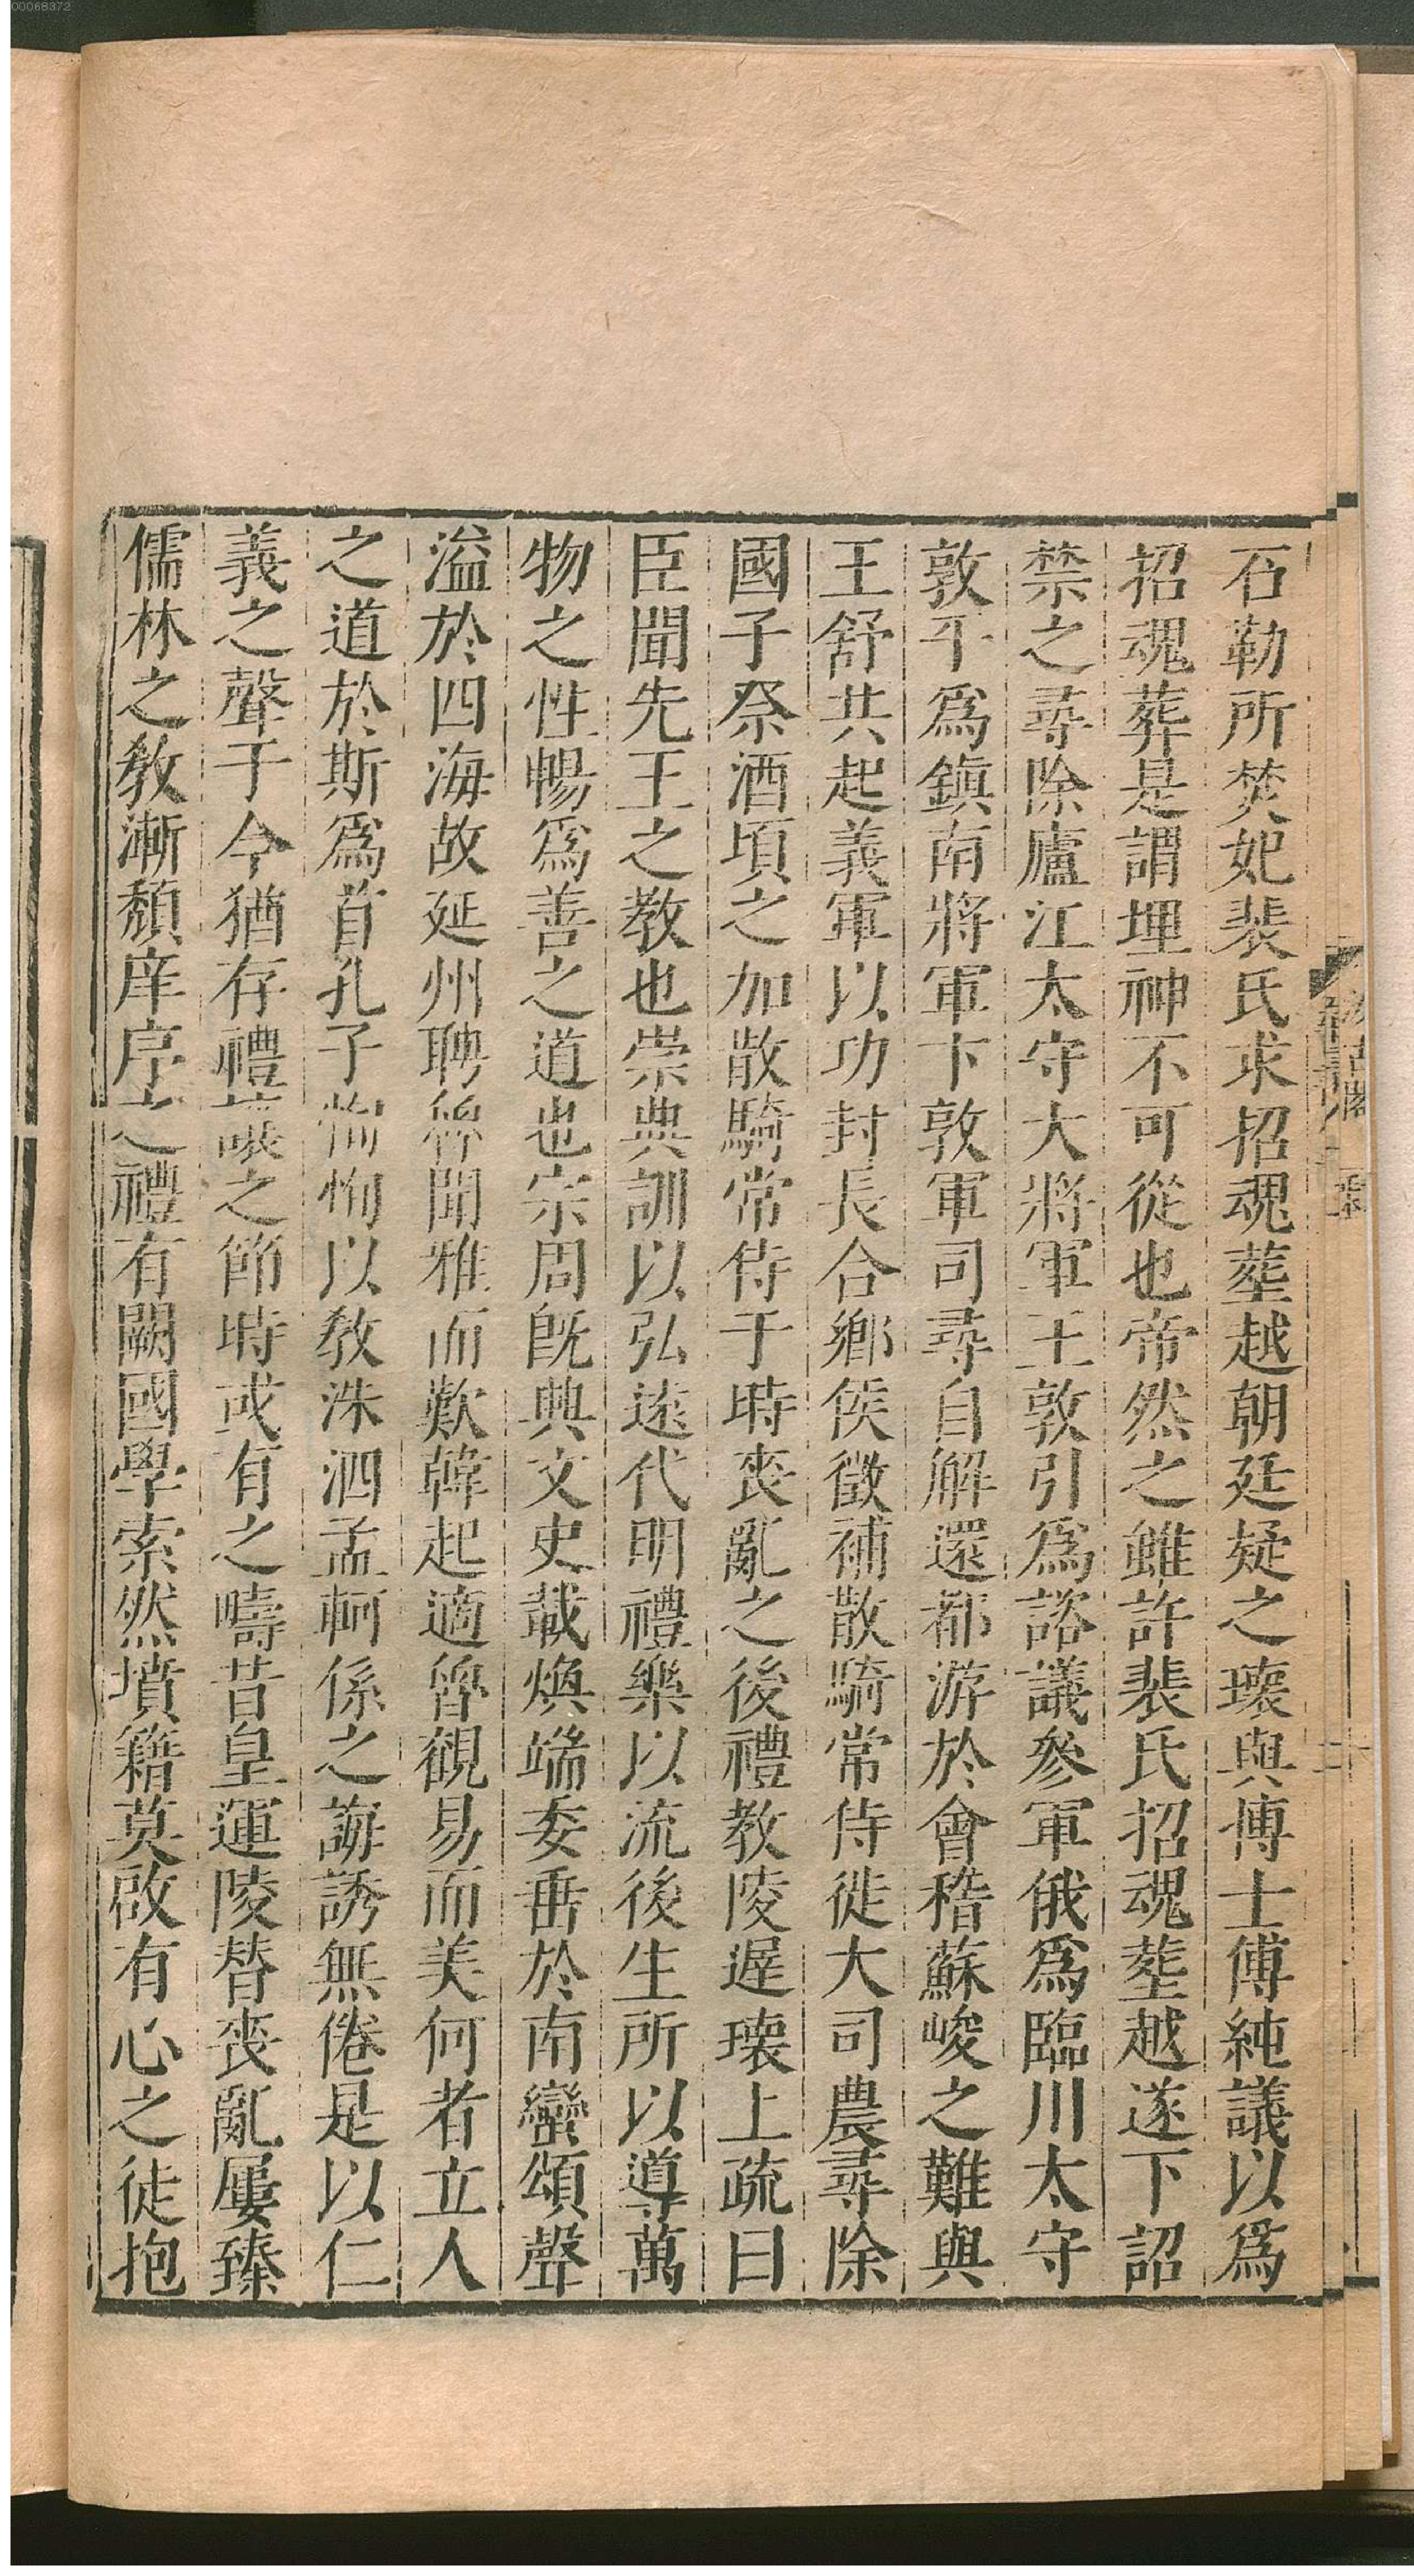 石勒所焚妃裴氏求招魂葬越朝廷疑之瓌與博士傅純議以爲
招魂葬是謂埋神不可從也帝然之雖許裴氏招魂葬越遂下詔
禁之尋除廬江太守大將軍王敦引爲諮議參軍俄爲臨川太守
敦平爲鎮南將軍卞敦軍司尋自解還都游於會稽蘇峻之難與
王舒共起義軍以功封長合鄉侯徵補散騎常侍徙大司農尋除
國子祭酒頃之加散騎常侍于時喪亂之後禮教陵遲瓌上疏曰
臣聞先王之教也崇典訓以弘遠代明禮樂以流後生所以導萬
物之性暢爲善之道也宗周旣興文史載煥端委垂於南蠻頌聲
溢於四海故延州聘魯聞雅而歎韓起適魯觀易而美何者立人
之道於斯爲首孔子恂恂以教洙泗孟軻係之誨誘無倦是以仁
義之聲于今猶存禮讓之節時或有之疇昔皇運陵替喪亂屢臻
儒林之教漸頹庠序之禮有闕國學索然墳籍莫啟有心之徒抱
00068372